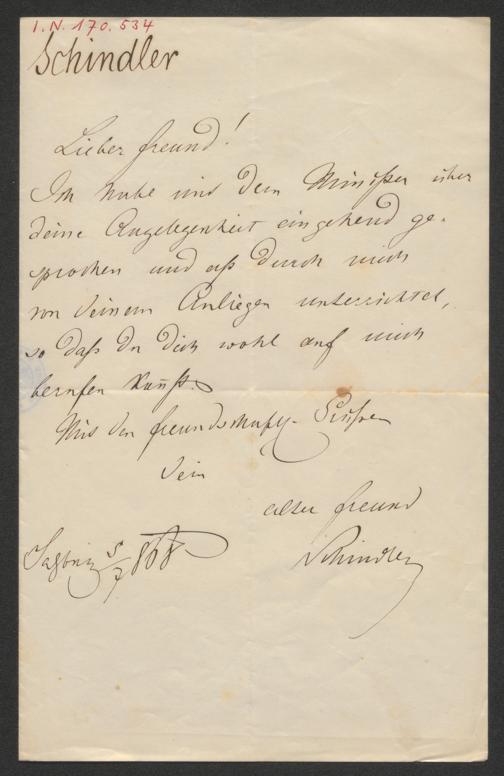 I.N. 170.534
Schindler
Lieber Freund!
Ich habe mit dem Minister über
deine Angelegenheit eingehend ge-
sprochen und ist durch mich
von deinem Anliegen unterrichtet,
so daß Du Dich wohl auf mich
berufen kannst.
Mit den freundschaftl. Grüßen
Dein
alter Freund
Schindler
5/7 868